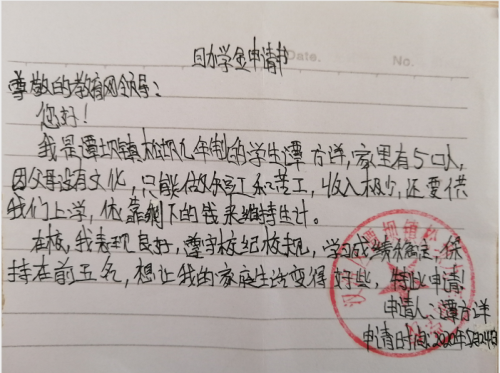 助学金申请书
Date.
No.
尊敬的教育网领导：
您好！
我是谭坝镇松坝九年制的学生谭方洋，家里有5口人，
因父母没有文化，只能做杂工和苦工，收入极少，还要供
我们上学，依靠剩下的钱来维持生计。
在校，我表现良好，遵守校纪校规，学习成绩稳定，保
持在前五名，想让我的家庭生活变得好些，特此申请！
申请人：谭方洋
申请时间：2020年5月